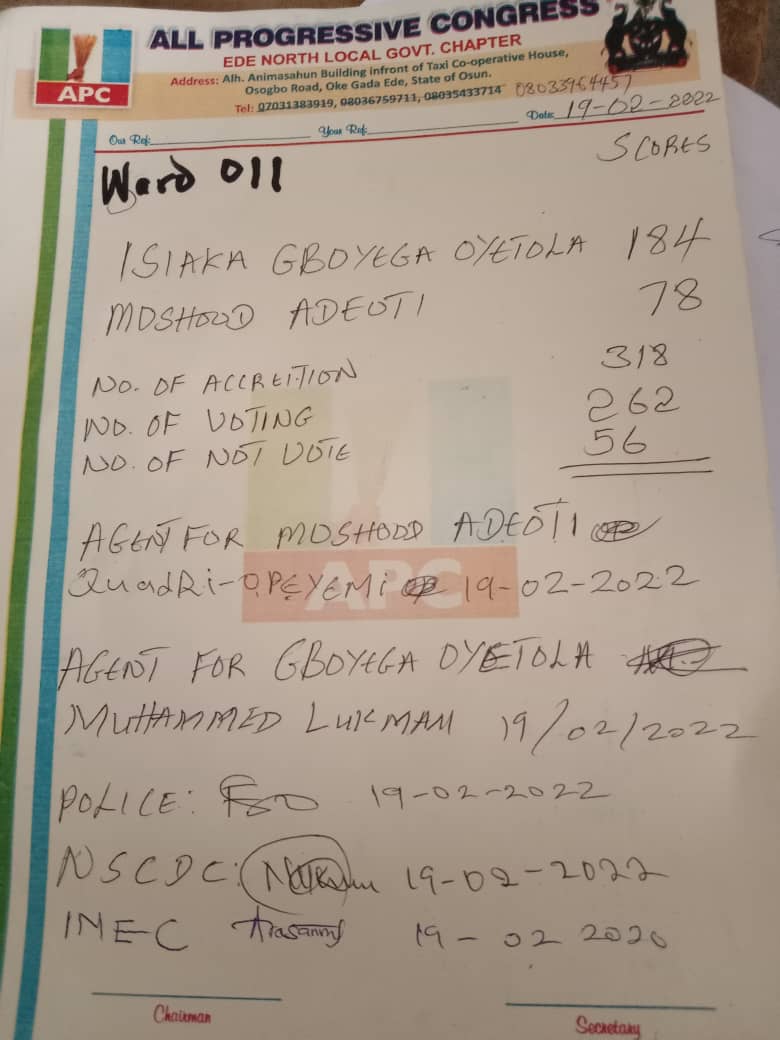 ALL PROGRESSIVE CONGRESS
EDE NORTH LOCAL GOVT. CHAPTER
Address: Alh. Animasahun Building infront of Taxi Co-operative House,
Osogbo Road, Oke Gada Ede, State of Osun.
Tel: 07031383919, 08036759711, 08035433714 08033964457
APC
Our Ref: Your Ref: Date: 19-02-2022
Ward 011 SCORES
ISIAKA GBOYEGA OYETOLA 184
MOSHOOD ADEOTI 78
NO. OF ACCREITION 318
NO. OF VOTING 262
NO. OF NOT VOTE 56
AGENT FOR MOSHOOD ADEOTI
QuadRi-OPEYEMi 19-02-2022
APC
AGENT FOR GBOYEGA OYETOLA
MUHAMMED LUKMAN 19/02/2022
POLICE: 19-02-2022
NSCDC: 19-02-2022
INEC 19-02 2020
Chairman Secretary